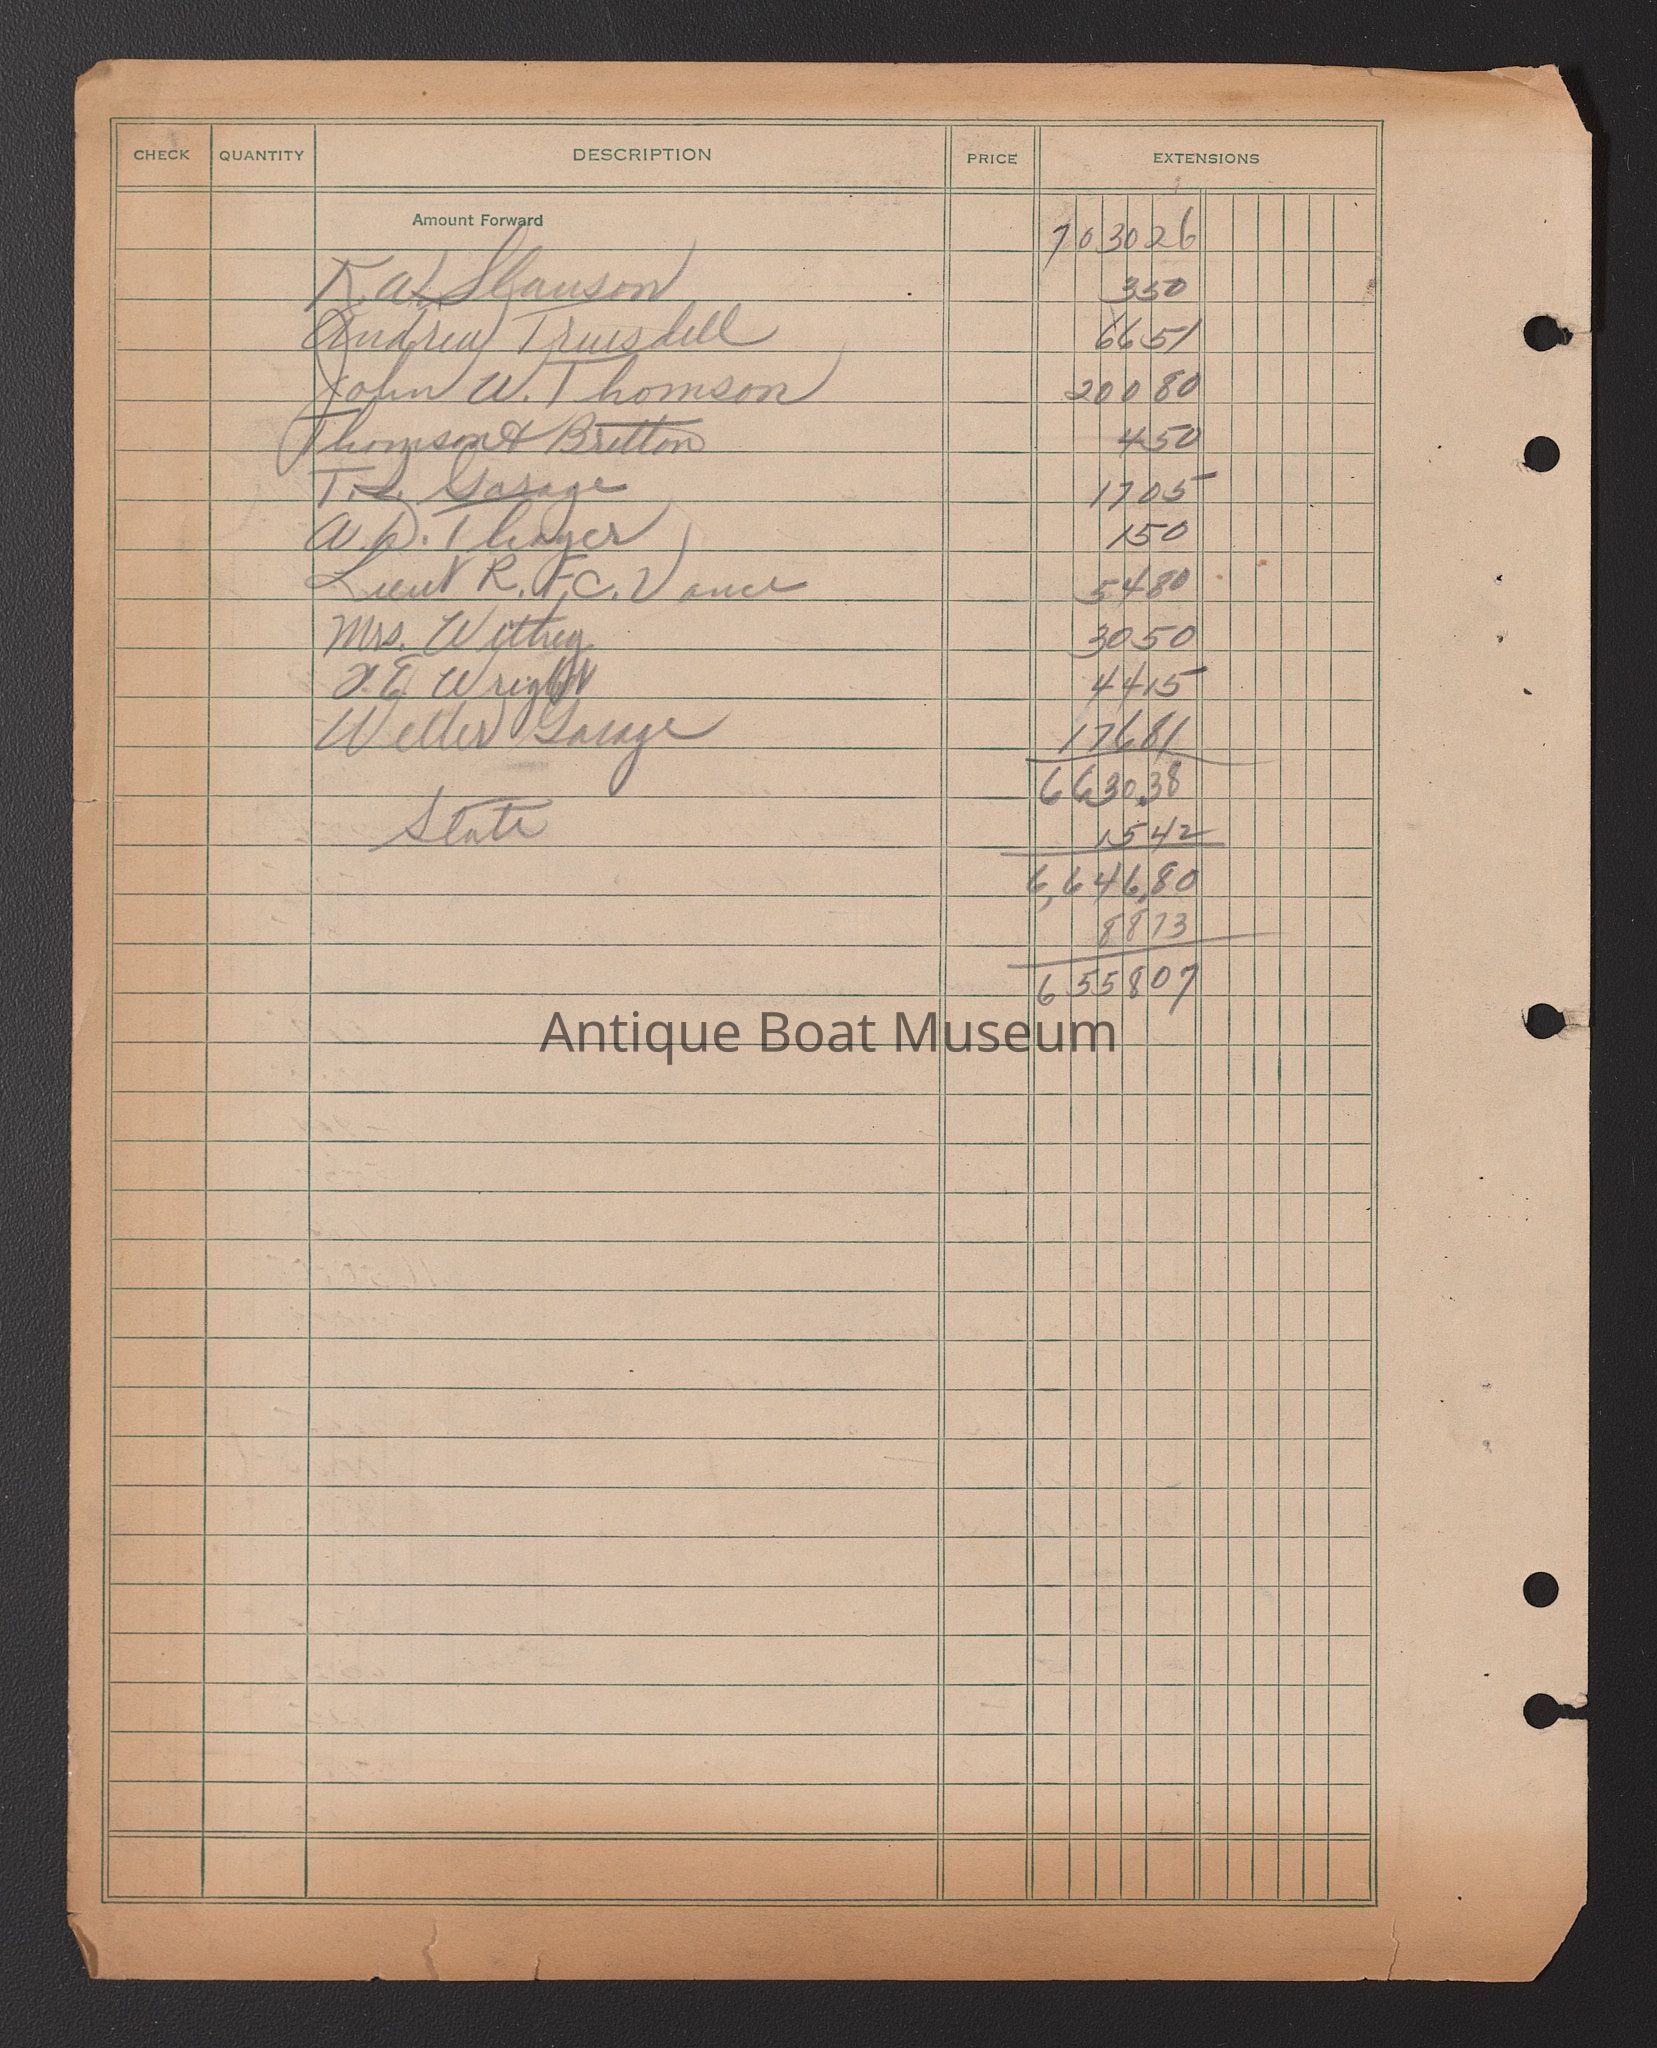 CHECK QUANTITY DESCRIPTION PRICE EXTENSIONS
Amount Forward 703026
K.A. Slauson 350
Andrew Truesdell 6651
John W. Thomson 20080
Thomson & Britton 450
T.I. Garage 1705
W.D. Thayer 150
Lieut R.F.C. Vance 5480
Mrs. 3050
E Wright 4415
Weller Garage 17681
6630.38
State 1542
6,646.80
8873
655807
Antique Boat Museum